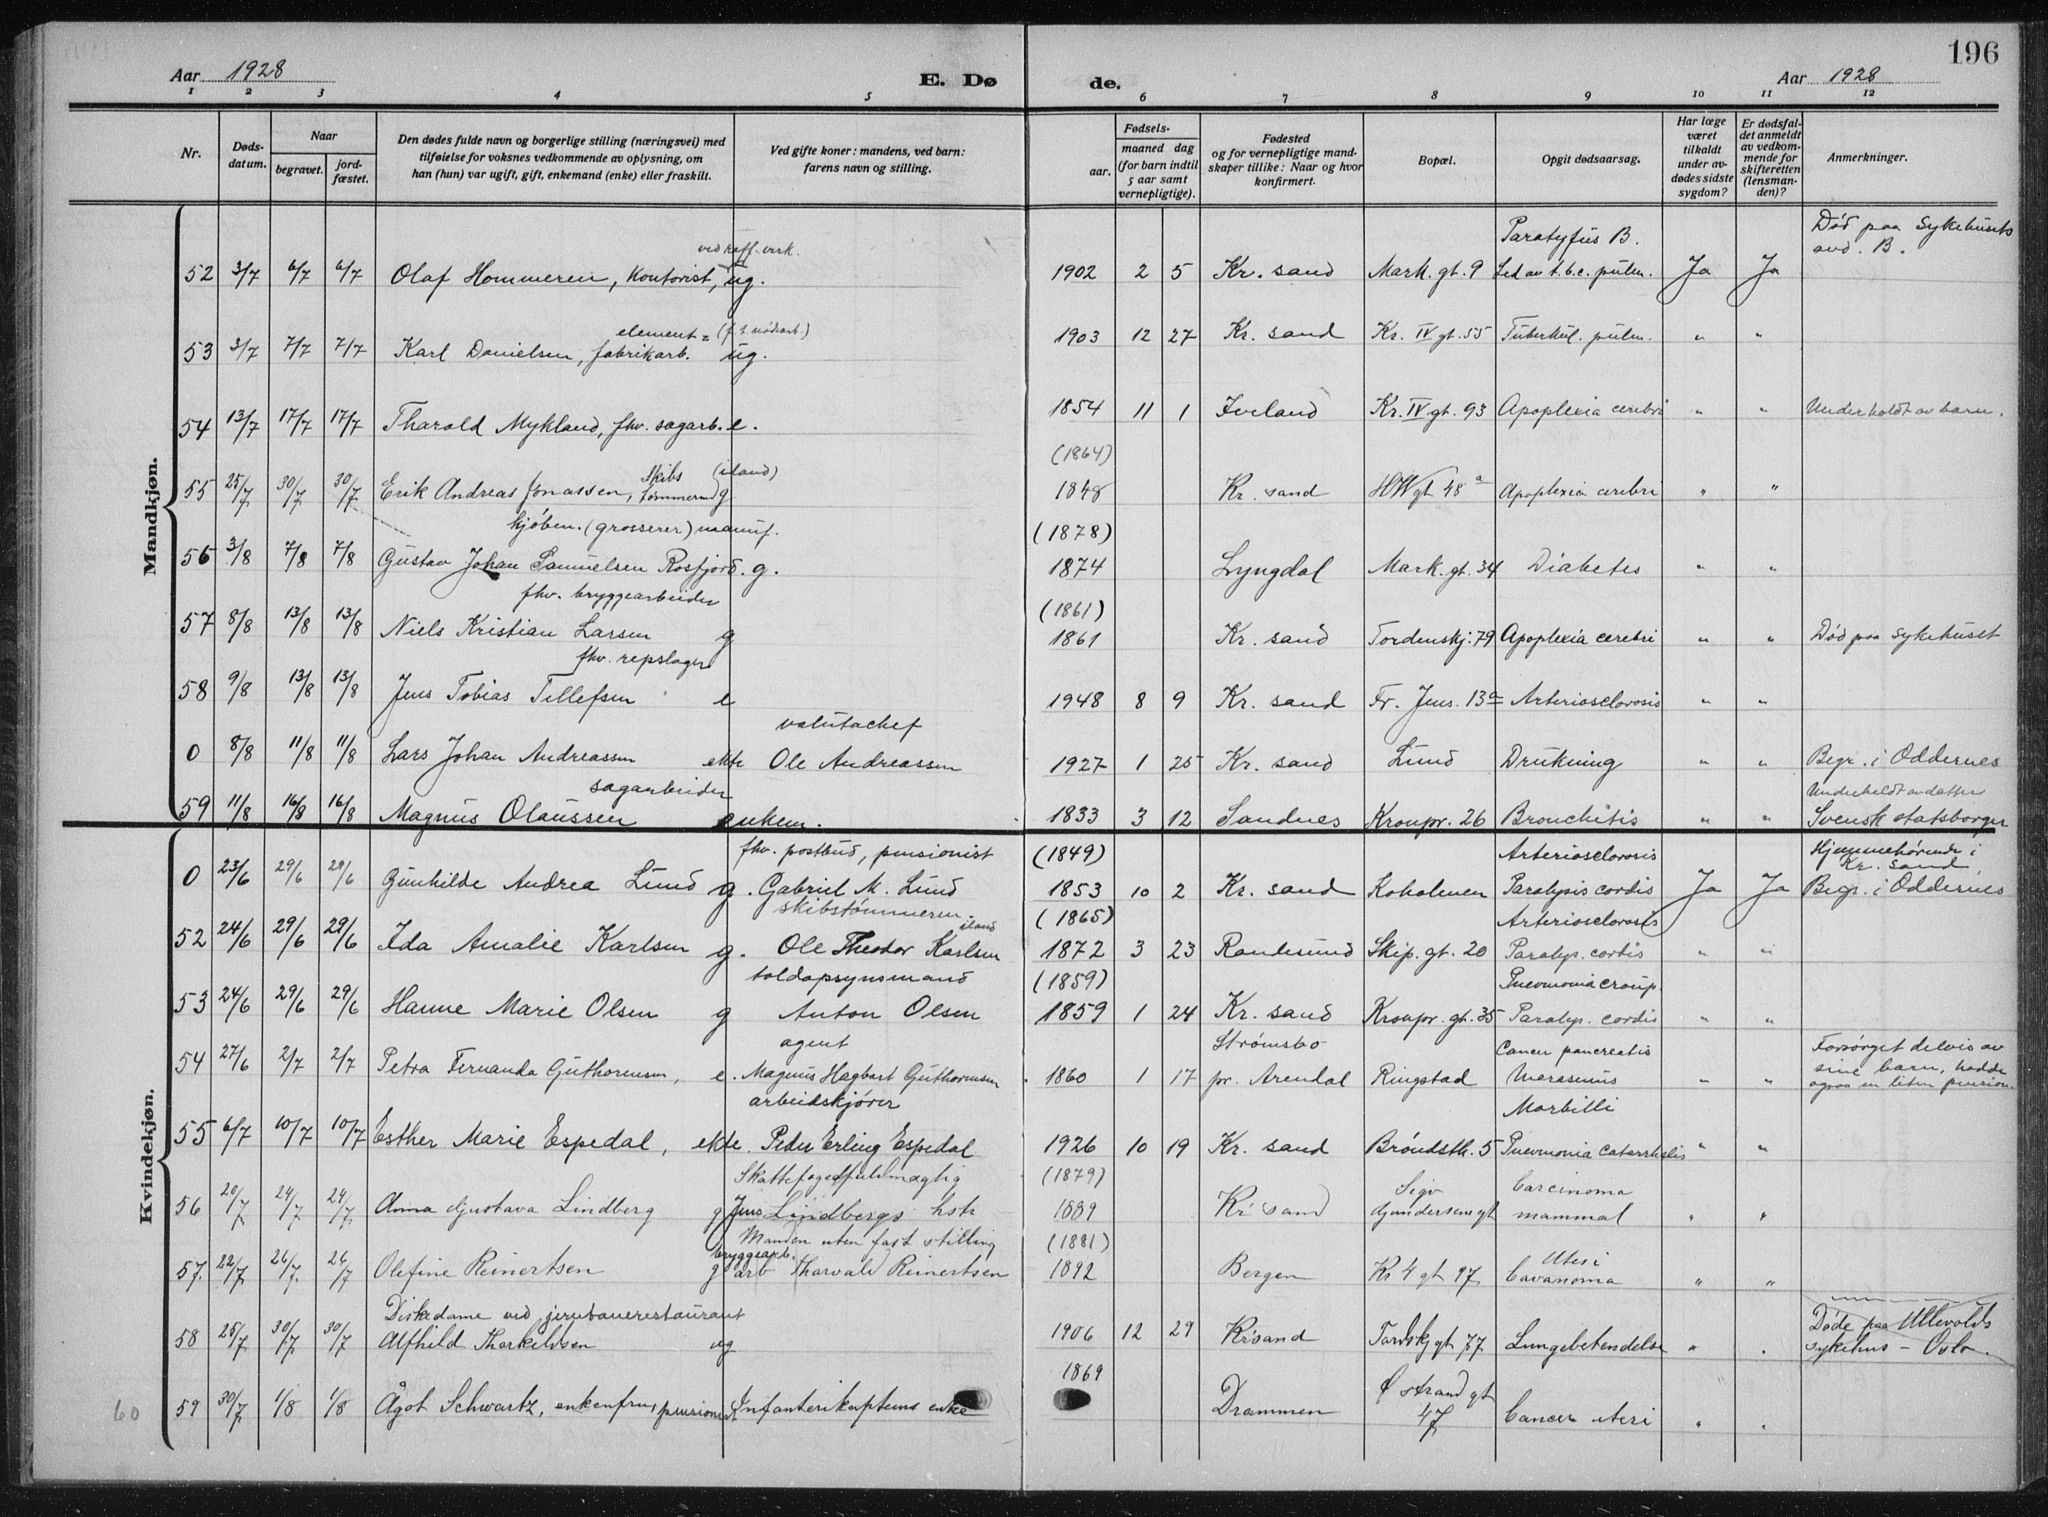 196
Aar 1928
E. Dø
de.
Aar 1928
1 2 3 4 5 6 7 8 9 10 11 12
Nr.
Døds-
datum.
Naar
begravet.
jord-
fæstet.
Den dødes fulde navn og borgerlige stilling (næringsvei) med
tilføielse for voksnes vedkommende av oplysning, om
han (hun) var ugift, gift, enkemand (enke) eller fraskilt.
Ved gifte koner: mandens, ved barn:
farens navn og stilling.
Fødsels-
aar.
maaned dag
(for barn indtil
5 aar samt
vernepligtige).
Fødested
og for vernepligtige mand-
skaper tillike: Naar og hvor
konfirmert.
Bopæl.
Opgit dødsaarsag.
Har læge
været
tilkaldt
under av-
dødes sidste
sygdom?
Er dødsfal-
det anmeldt
av vedkom-
mende for
skifteretten
(lensman-
den)?
Anmerkninger.
Mandkjøn.
ved raff. verk. Paratyfus B. Død paa Sykehusets
avd. B.
52 3/7 6/7 6/7 Olaf Hommeren, kontorist, ug. 1902 2 5 Kr. sand Mark. gt. 9 Led av t.b.c. pulm. Ja Ja
element= (f. t. nødsarb.)
53 3/7 7/7 7/7 Karl Danielsen, fabrikarb. ug. 1903 12 27 Kr. sand Kr. IV gt. 55 Tuberkul. pulm. " "
54 13/7 17/7 17/7 Tharald Mykland, fhv. sagarb. e. 1854 11 1 Iveland Kr. IV gt. 93 Apoplexia cerebri " " Underholdt av barn.
Skibs (iland) (1864)
55 25/7 30/7 30/7 Erik Andreas Jonassen, tømmermd g 1848 Kr. sand HW gt 48 a Apoplexia cerebri " "
kjøbm. (grosserer) manuf. (1878)
56 3/8 7/8 7/8 Gustav Johan Samuelsen Rosfjord. g. 1874 Lyngdal Mark. gt. 34 Diabetes " "
fhv. bryggearbeider (1861)
57 8/8 13/8 13/8 Niels Kristian Larsen g 1861 Kr. sand Tordenskj. 79 Apoplexia cerebri " " Død paa sykehuset
fhv. repslager
58 9/8 13/8 13/8 Jens Tobias Tellefsen e 1948 8 9 Kr. sand Fr. Jens. 13a Arteriosclorosis " "
valutachef
0 8/8 11/8 11/8 Lars Johan Andreassen ekte Ole Andreassen 1927 1 25 Kr. sand Lund Drukning " " Begr. i Oddernes
sagarbeider Underholdt av datter
59 11/8 16/8 16/8 Magnus Olaussen enkem. 1833 3 12 Sandnes Kronpr. 26 Bronchitis " " Svensk statsborger
Kvindekjøn.
fhv. postbud, pensionist (1849) Arteriosclorosis Hjemmehørende i
Kr. sand,
0 23/6 29/6 29/6 Gunhilde Andrea Lund g. Gabriel M. Lund 1853 10 2 Kr. sand Koholmen Paralysis cordis Ja Ja Begr. i Oddernes
skibstømmerm. iland (1865) Arteriosclorosis
52 24/6 29/6 29/6 Ida Amalie Karlsen g. Ole Theodor Karlsen 1872 3 23 Randesund Skip. gt. 20 Paralys. cordis " "
toldopsynsmand (1859) Pneumonia croup.
53 24/6 29/6 29/6 Hanne Marie Olsen g Anton Olsen 1859 1 24 Kr. sand Kronpr. gt. 35 Paralys. cordis " "
agent Strømsbo Cancer pancreatis Forsørget delvis av
54 27/6 2/7 2/7 Petra Fernanda Guthormsen, e. Magnus Hagbart Guthormsen 1860 1 17 pr. Arendal Ringstad Marasmus " " sine barn, hadde
ogsaa en liten pension.
arbeidskjører Morbilli
55 6/7 10/7 10/7 Esther Marie Espedal, ekte. Peder Erling Espedal 1926 10 19 Kr. sand Brøndsth. 5 Pneumonia catarrhalis " "
Skattefogedfuldmægtig (1879) Sigv Carcinoma
56 20/7 24/7 24/7 Anna Gustava Lindberg g Jens Lindbergs hstr 1889 Kr sand Gundersens gt mammal " "
Manden uten fast stilling (1881)
bryggearb. Uteri
57. 22/7 26/7. 26/7 Olefine Reinertsen g arb Thorvald Reinertsen 1892 Bergen Kr 4 gt 97 Cavanoma " "
Diskedame ved jernbanerestaurant Døde paa Ullevolds
58 25/7 30/7 30/7 Alfhild Thorkildsen ug 1906 12 29 Krsand Tordskj gt 77 Lungebetendelse " . sykehus – Oslo.
1869 Ø strand gt
60 59 30/7 1/8 1/8 Ågot Schwartz, enkefru, pensionist Infanterikapteins enke Drammen 47 Cancer uteri